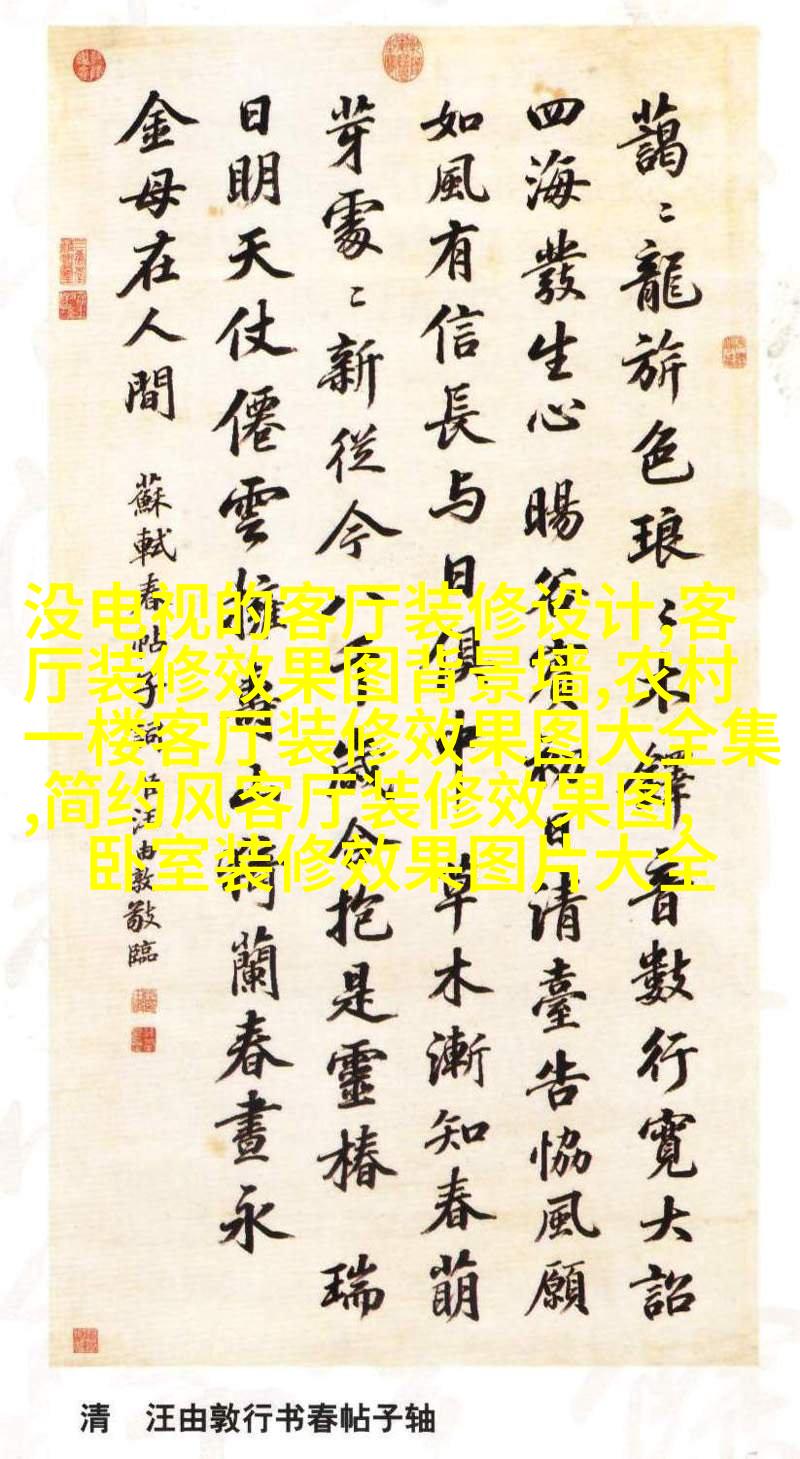 藹〻龍旂色琅〻木鐸音數行寬大詔
四海發生心 暘谷賓初日清臺告協風願
如風有信長与日俱中 草木漸知春萌
芽處〻新從今八千歲合抱是靈椿 瑞
日明天仗僊雲擁壽山猗蘭春晝永
金母在人間
蘇軾春帖子詞 臣汪由敦敬臨
没电视的客厅装修设计,客
厅装修效果图背景墙,农村
一楼客厅装修效果图大全集
,简约风客厅装修效果图,
卧室装修效果图片大全
清 汪由敦行书春帖子轴